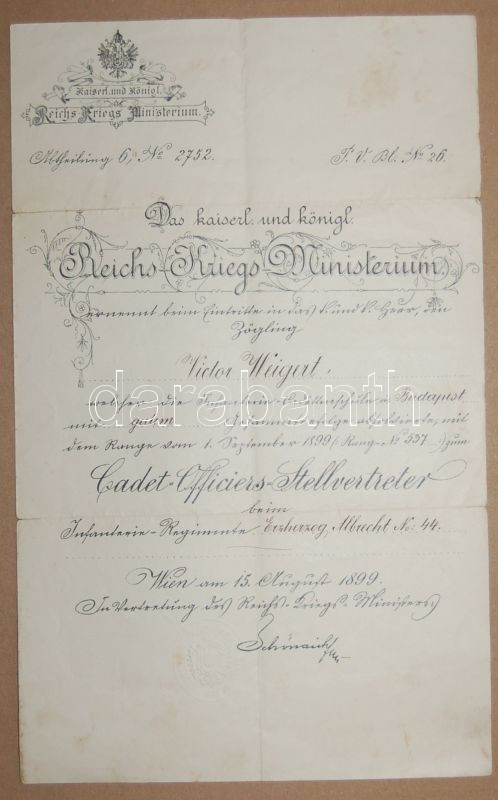 Kaiserl. und Königl.
Reichs Kriegs Ministerium.
Abtheilung 6, No 2752.
F. V. Bl. No 26.
Das kaiserl. und königl.
Reichs-Kriegs-Ministerium
ernennt beim Eintritte in das k. und k. Heer, den
Zögling
Victor Weigert,
welcher die Infanterie-Cadettenschule in Budapest
mit gutem Gesammterfolge absolvierte, mit
dem Range vom 1. September 1899 (Rang-No 337-) zum
Cadet-Officiers-Stellvertreter
beim
Infanterie-Regimente Erzherzog Albrecht No: 44.
Wien am 15. August 1899.
In Vertretung des Reichs-Kriegs-Ministers
Schönaich
darabanth